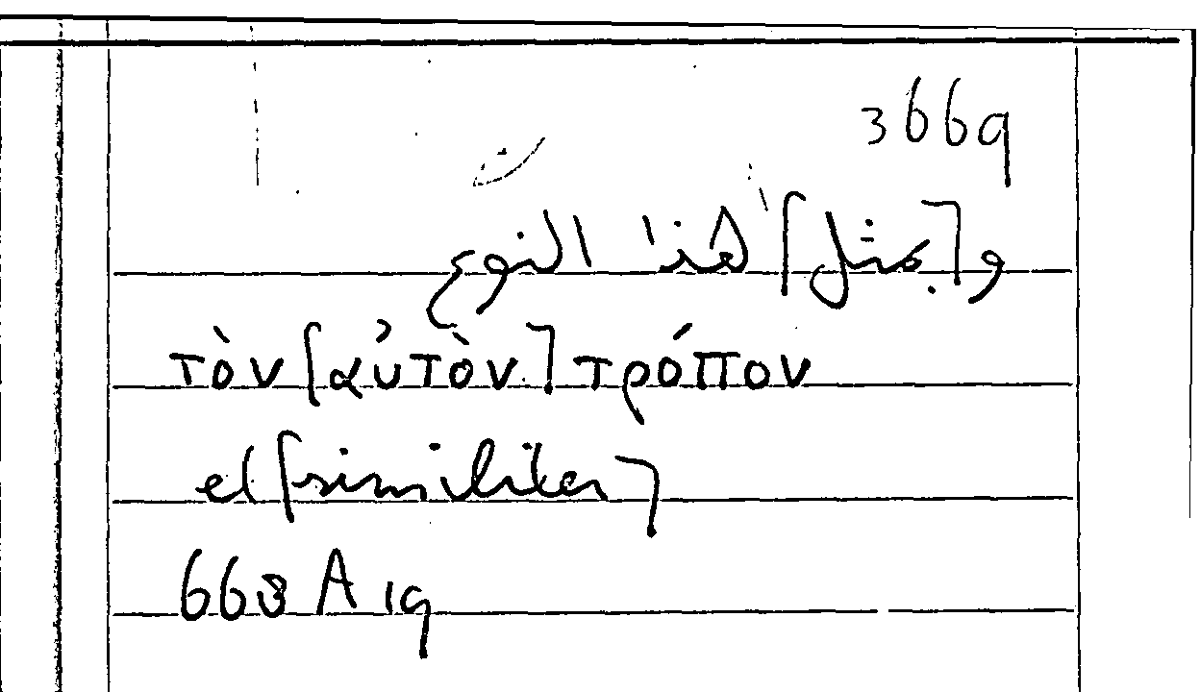 3669
و[بمثل] هذا النوع
τὸν [αὐτὸν] τρόπον
et [similiter]
668 A 19